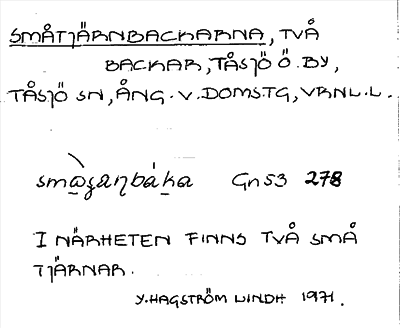 SMÅTJÄRNBACKARNA, TVÅ
BACKAR, TÅSJÖ Ö. BY,
TÅSJÖ SN, ÅNG. V. DOMS.TG, VRNL. L.
Gn 53 278
I NÄRHETEN FINNS TVÅ SMÅ
TJÄRNAR.
Y. HAGSTRÖM LINDH 1971.